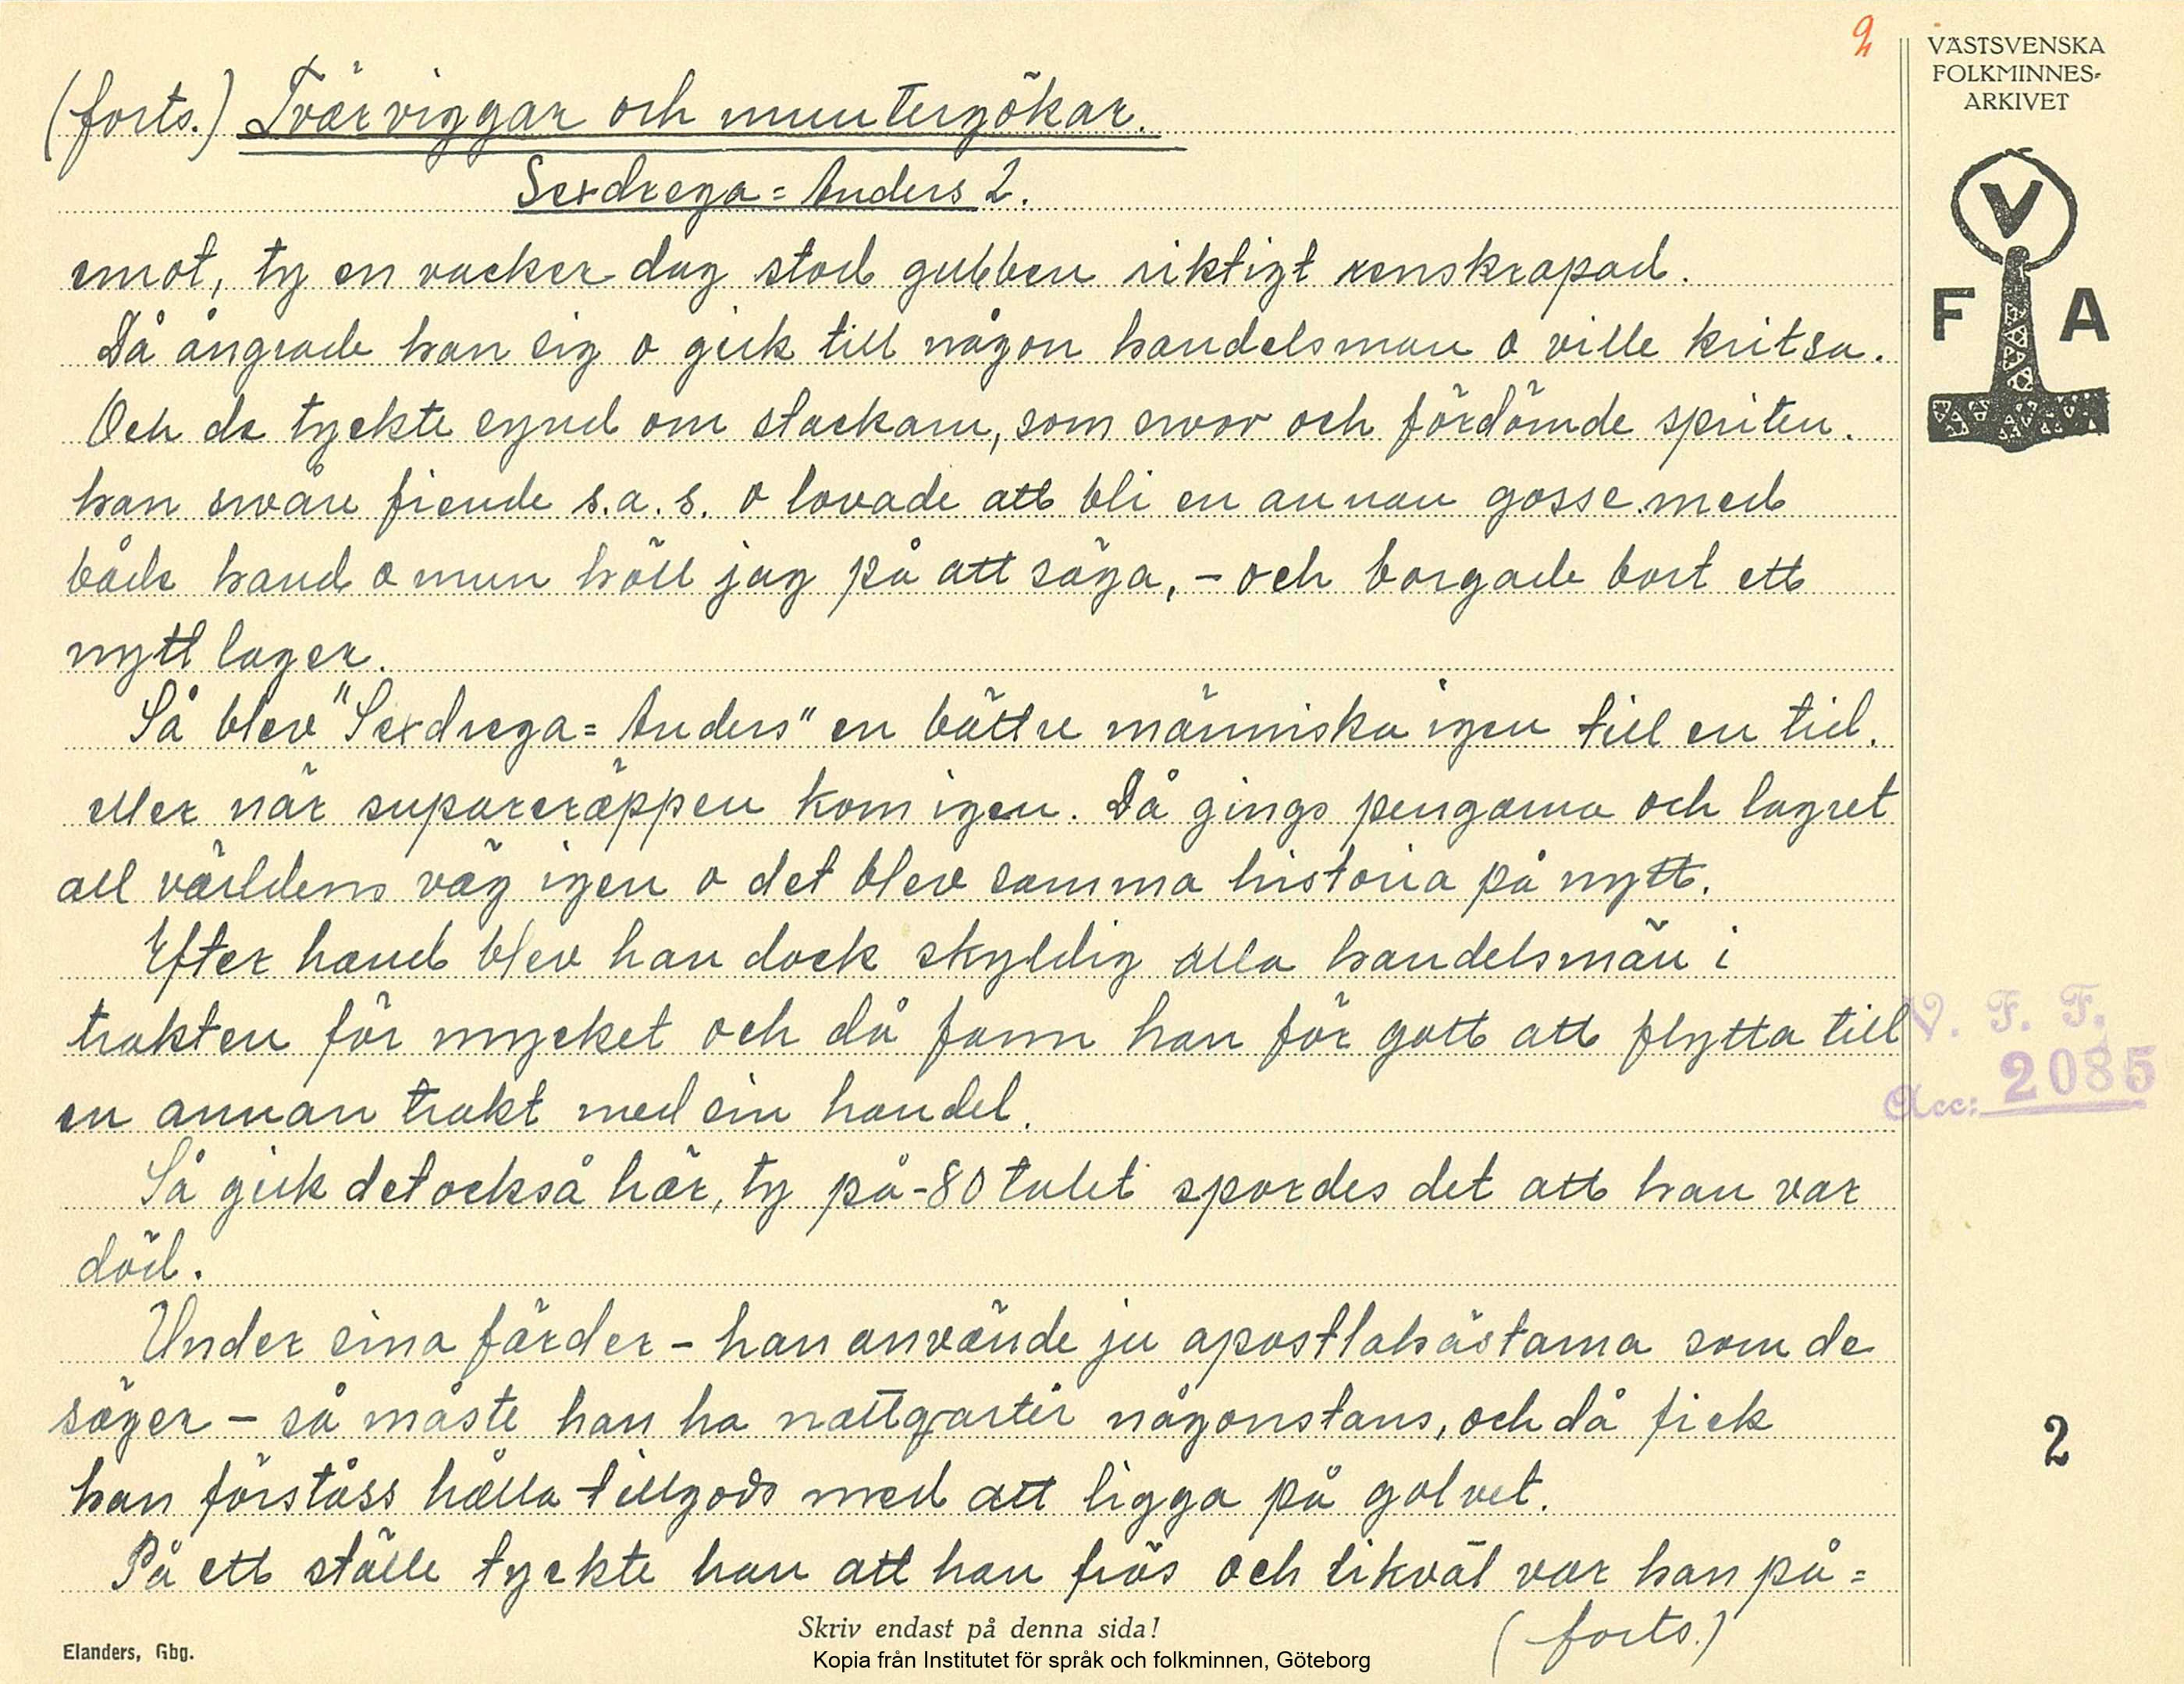 2
VÄSTSVENSKA
FOLKMINNES-
ARKIVET
V
F A
(forts.) Tvärviggar och muntergökar.
Sexdrega=Anders 2.
emot, ty en vacker dag stod gubben riktigt renskrapad.
Då ångrade han sig o gick till någon handelsman o ville kritsa.
Och de tyckte synd om stackarn, som svor och fördömde spriten.
han svåre fiende s.a.s. o lovade att bli en annan gosse med
både hand o mun höll jag på att säga, - och borgade bort ett
nytt lager.
Så blev "Sexdrega=Anders" en bättre människa igen till en tid.
eller när supareräppen kom igen. Då gings pengarna och lagret
all världens väg igen o det blev samma historia på nytt.
Efter hand blev han dock skyldig alla handelsmän i
trakten för mycket och då fann han för gott att flytta till
en annan trakt med sin handel.
Så gick det också här, ty på -80 talet spordes det att han var
död.
Under sina färder - han använde ju apostlahästarna som de
säger - så måste han ha nattqvarter någonstans, och då fick
han förståss hålla tillgodo med att ligga på golvet.
På ett ställe tyckte han att han frös och likväl var han på=
(forts.)
V. F. F.
Acc: 2085
2
Skriv endast på denna sida!
Elanders, Gbg.
Kopia från Institutet för språk och folkminnen, Göteborg